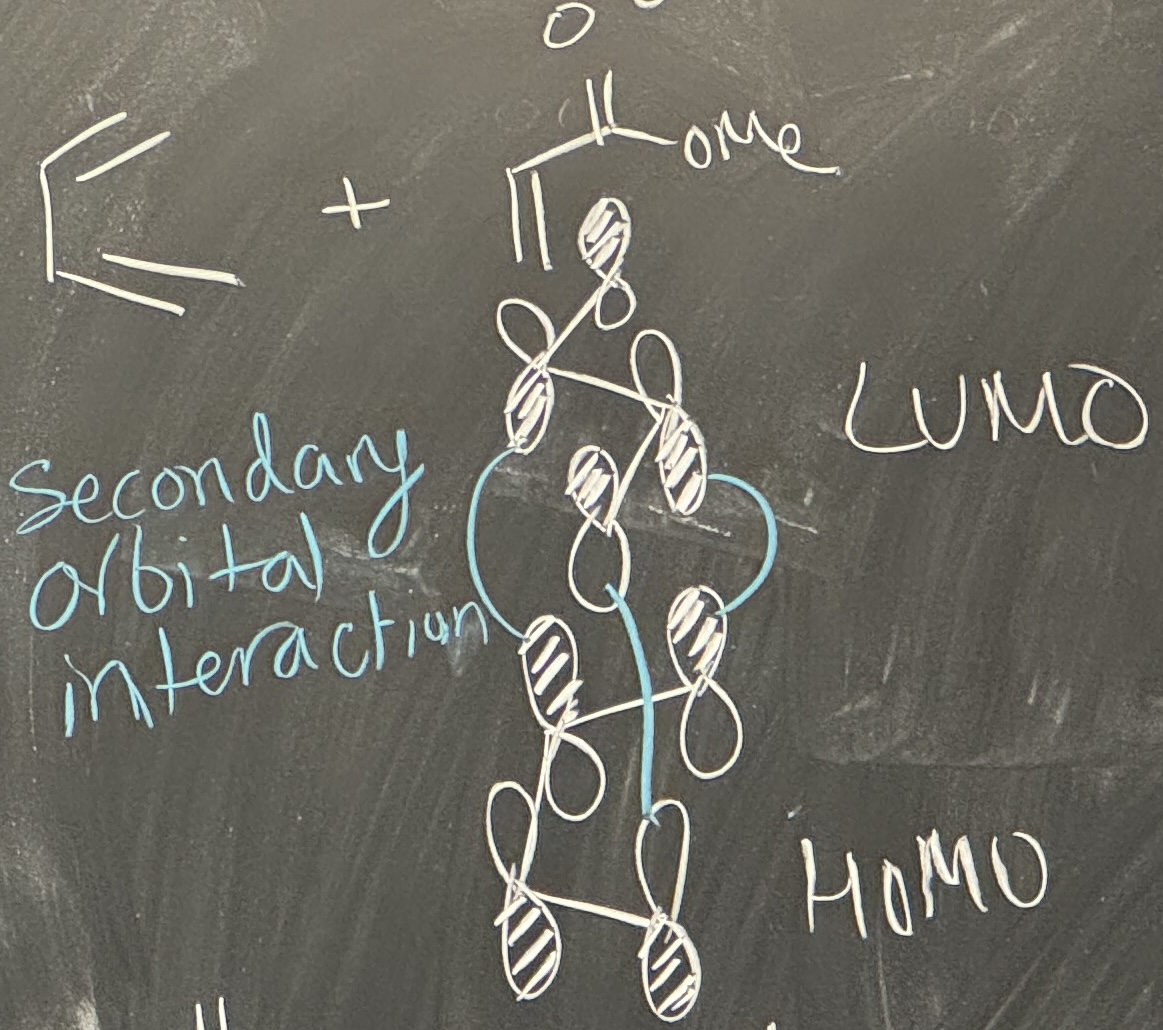 O
OMe
+
LUMO
Secondary
orbital
interaction
HOMO